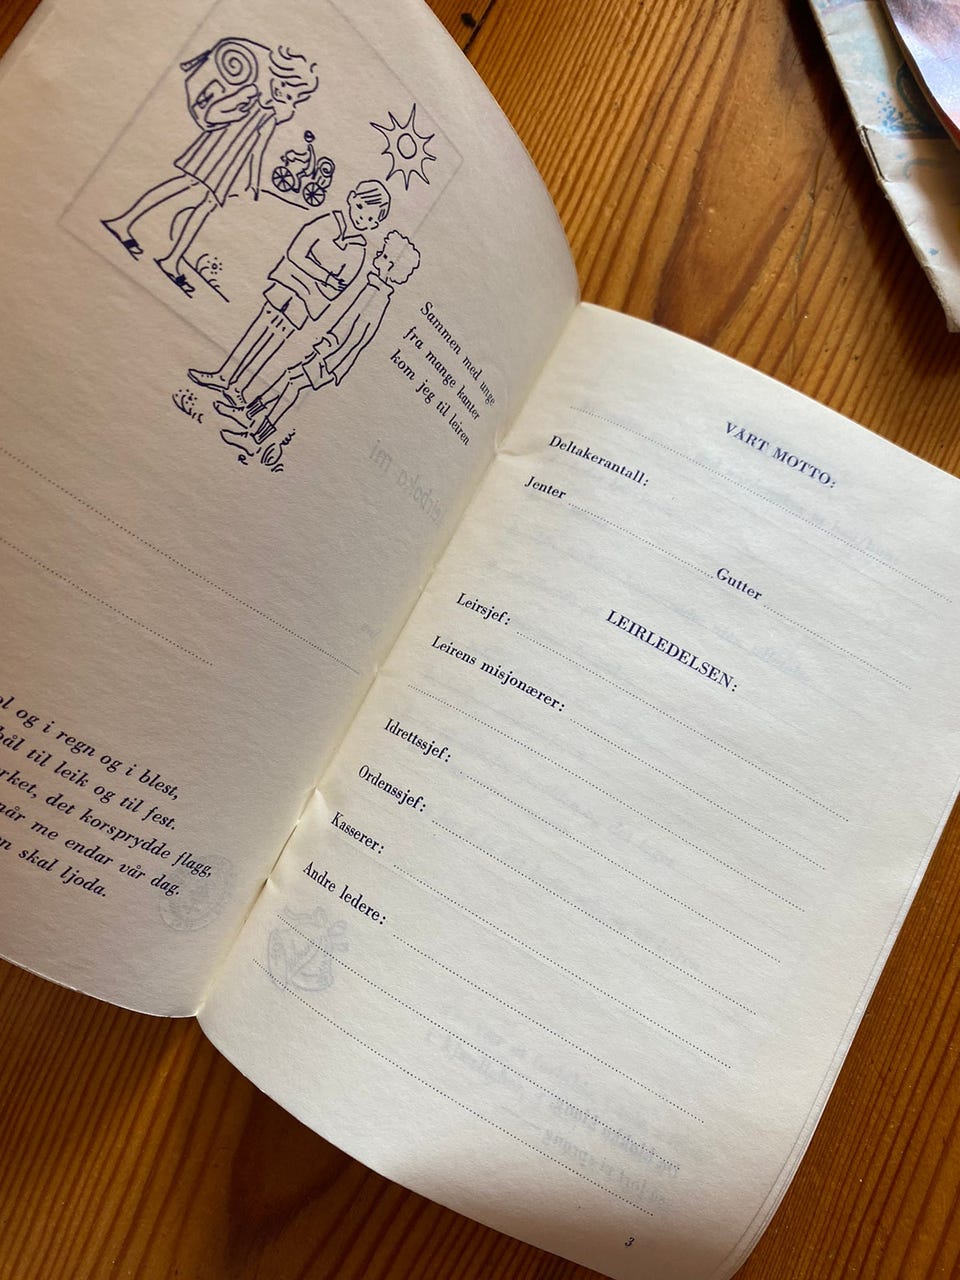 Sammen med unge
fra mange kanter
kom jeg til leiren
og i regn og i blest,
til leik og til fest.
det korsprydde flagg,
når me endar vår dag.
skal ljoda.
VÅRT MOTTO:
Deltakerantall:
Jenter Gutter
LEIRLEDELSEN:
Leirsjef:
Leirens misjonærer:
Idrettssjef:
Ordenssjef:
Kasserer:
Andre ledere:
3